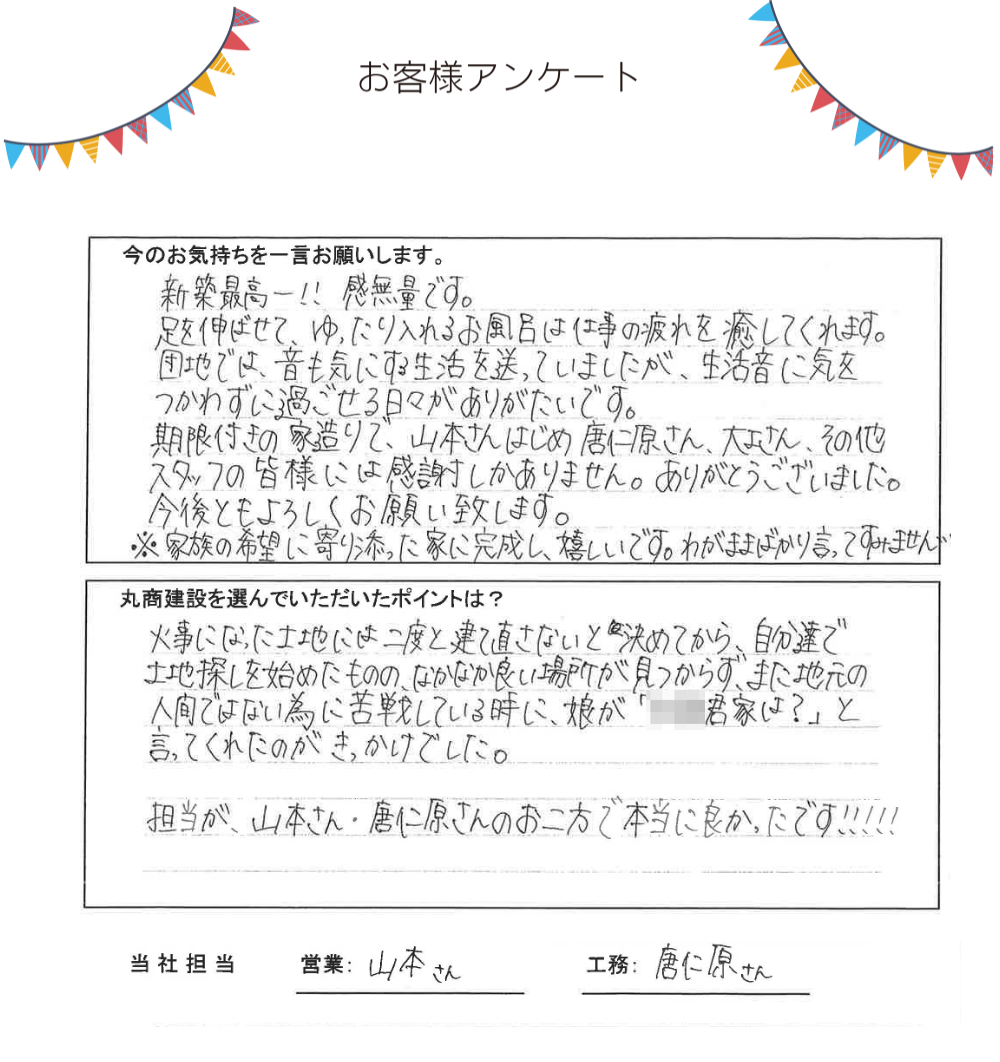 お客様アンケート
今のお気持ちを一言お願いします。
新築最高ー!! 感無量です。
足を伸ばせて、ゆったり入れるお風呂は仕事の疲れを癒してくれます。
団地では、音も気にする生活を送っていましたが、生活音に気を
つかわずに過ごせる日々がありがたいです。
期限付きの家造りで、山本さんはじめ唐仁原さん、大工さん、その他
スタッフの皆様には感謝しかありません。ありがとうございました。
今後ともよろしくお願い致します。
※家族の希望に寄り添った家に完成し、嬉しいです。わがままばかり言ってすみません
丸商建設を選んでいただいたポイントは？
火事になった土地には二度と建て直さないと決めてから、自分達で
土地探しを始めたものの、なかなか良い場所が見つからず、また地元の
人間ではない為に苦戦している時に、娘が「君家は？」と
言ってくれたのがきっかけでした。
担当が、山本さん・唐仁原さんのお二方で本当に良かったです!!!!!
当社担当 営業: 山本さん 工務: 唐仁原さん